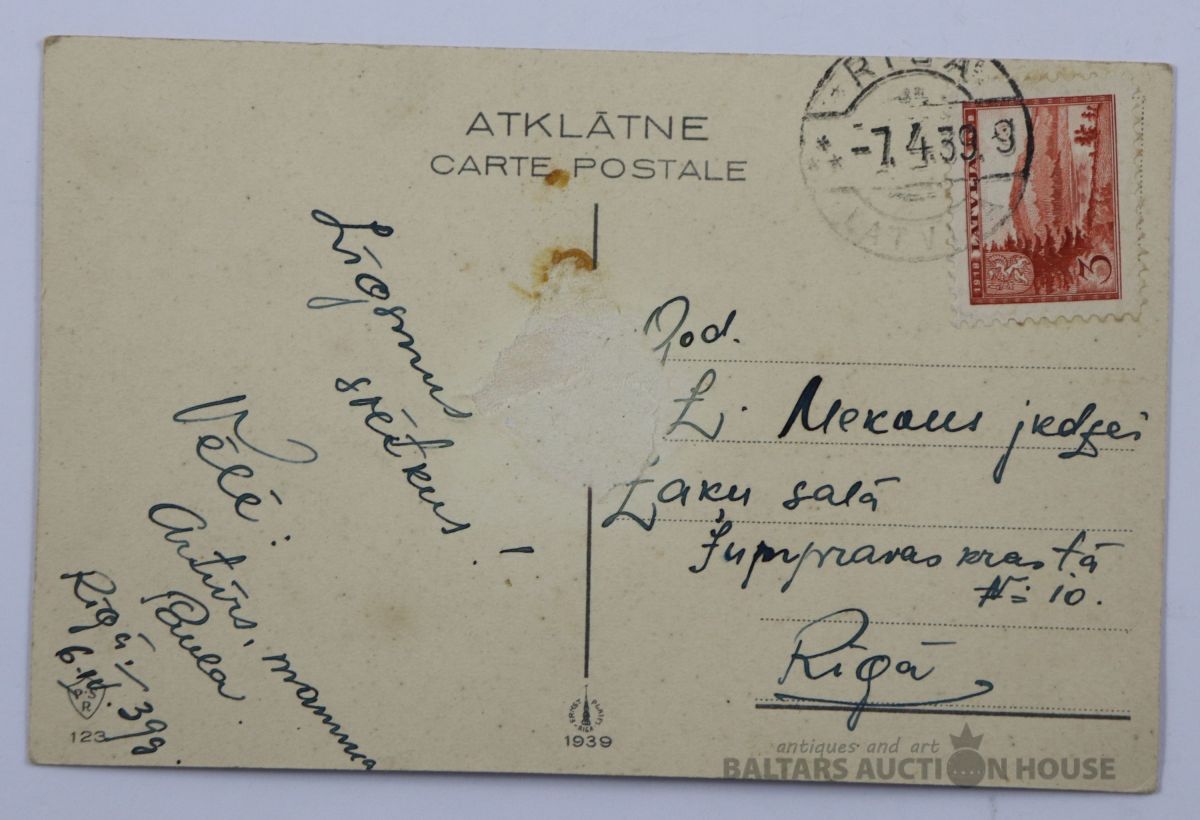 ATKLĀTNE
CARTE POSTALE
RIGA
-7.4.39.9
LATVIJA
1918 LATVIJA
3
Līgsmus
svētkus!
Vēlē:
Artūrs, mamma
Paula
Rīgā.
6.IV.39g.
God.
Ž.
Zaķu salā
krastā
№ 10.
Rīgā
123
ERNST PLATES RIGA
1939
antiques and art
BALTARS AUCTION HOUSE